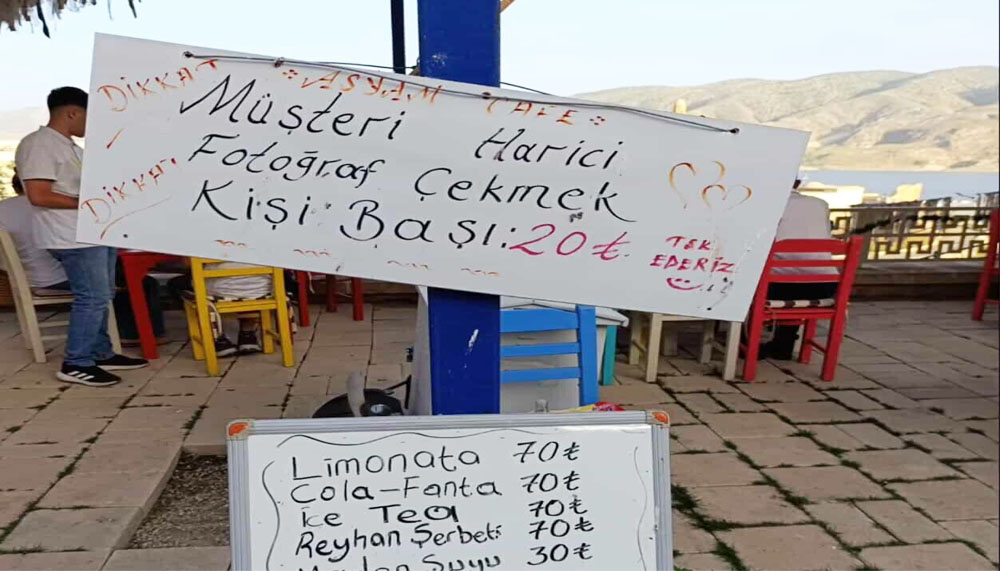 DİKKAT ASYAM CAFE
Müşteri Harici
DİKKAT!
Fotoğraf Çekmek
Kişi Başı: 20₺.
TEK
EDERİZ
Limonata 70₺
Cola-Fanta 70₺
ice Tea 70₺
Reyhan Şerbeti 70₺
Suyu 30₺